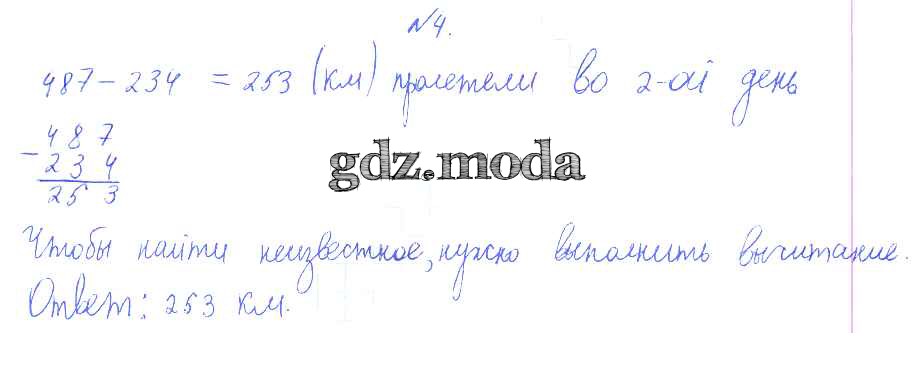 №4.
487 - 234 = 253 (км) пролетели во 2-ой день
- 487
234
253
gdz.moda
Чтобы найти неизвестное, нужно выполнить вычитание.
Ответ: 253 км.